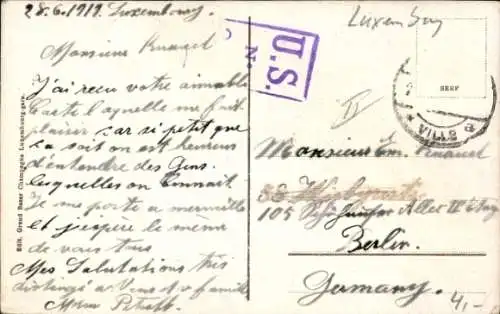 28.6.1919. Luxembourg.
Monsieur
J'ai reçu votre aimable
Carte laquelle me fait
plaisir car si petit que
ça soit on est heureux
d'entendre des Gens
lesquelles on Connait.
Je me porte a merveille
et j'espère le même
de vous tous
Mes Salutations très
a Vous et v famille
Edit. Grand Bazar Champagne Luxembourg-gare.
U.S.
Luxemburg
HERF
VILLE
II
Monsieur Em.
105 Schönhauser Allee II Etage
Berlin.
Germany.
4,-